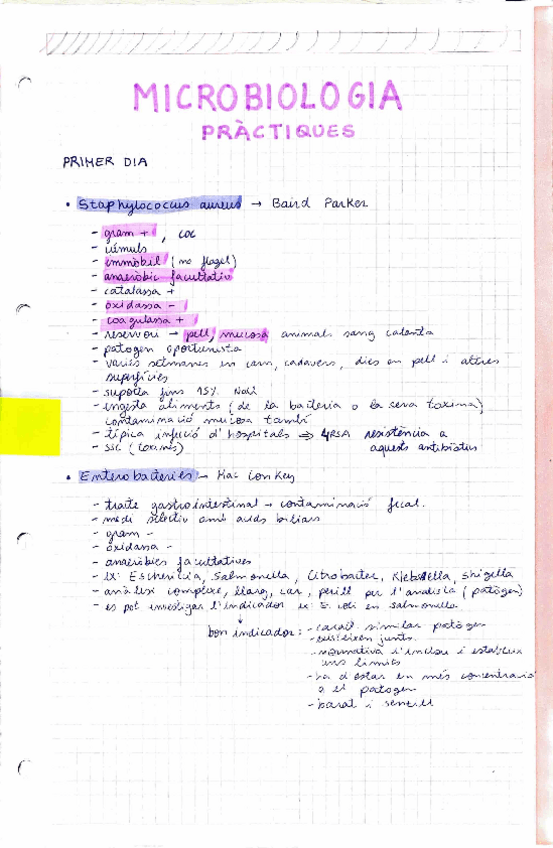 MICROBIOLOGIA
PRÀCTIQUES
PRIMER DIA
• Staphylococcus aureus → Baird Parker
- gram +, coc
- cúmuls
- immòbil (no flagel)
- anaeròbic facultatiu
- catalasa +
- oxidassa -
- coagulassa +
- reservori → pell, mucosa animals sang calenta
- patogen oportunista
- varies setmanes en carn, cadavers, dies en pell i altres
superfícies
- suporta fins 15% NaCl
- ingesta aliments (de la bacteria o la seva toxina)
contaminació mucosa també
- típica infeció d'hospitals ⇒ MRSA resistència a
- SSC (toxines) aquests antibiòtics
• Enterobacteries - Mac Conkey
- tracte gastrointestinal → contaminació fecal.
- medi selectiu amb àcids biliars
- gram -
- oxidasa -
- anaeròbies facultatives
- Ex: Escherichia, Salmonella, Citrobacter, Klebsiella, Shigella
- anàlisi complexe, llarg, car, perill per l'analista (patògen)
- es pot investigar l'indicador ex: E. coli en salmonella
↓
bon indicador: - caract similar patògen
- coexisteixen junts.
- normativa l'inclou i estableix
uns límits
- ha d'estar en més concentració
a el patogen
- barat i senzill